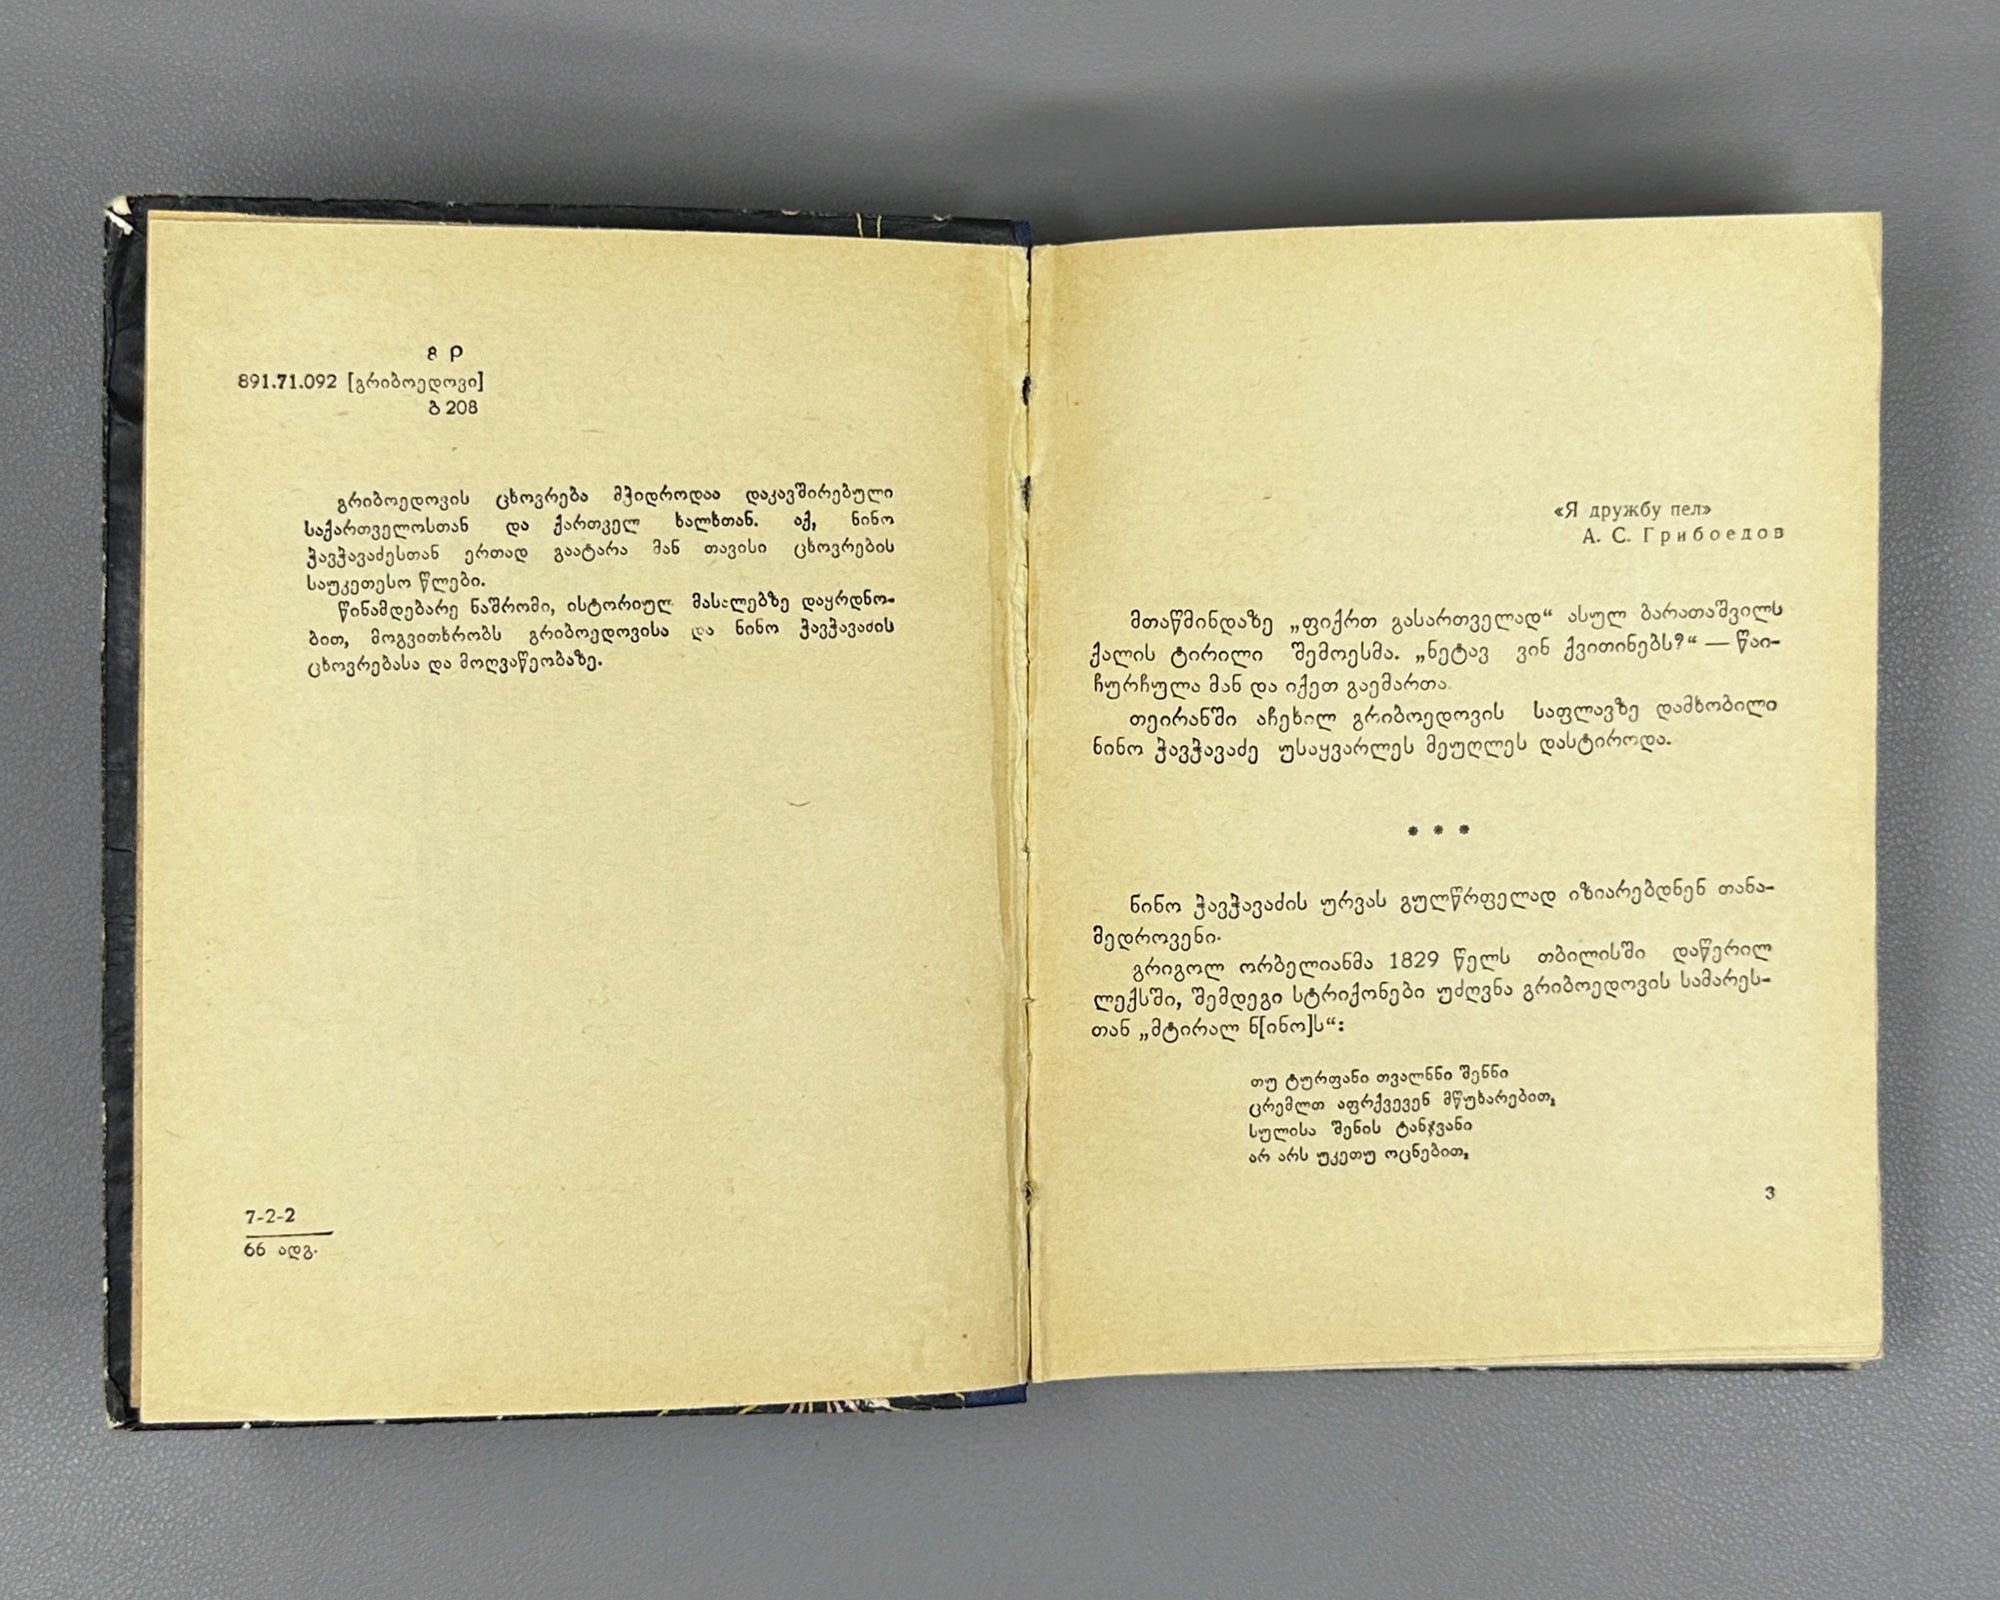 8 Р
891.71.092 [გრიბოედოვი]
ბ 208
გრიბოედოვის ცხოვრება მჭიდროდაა დაკავშირებული
საქართველოსთან და ქართველ ხალხთან. აქ, ნინო
ჭავჭავაძესთან ერთად გაატარა მან თავისი ცხოვრების
საუკეთესო წლები.
წინამდებარე ნაშრომი, ისტორიულ მასალებზე დაყრდნო-
ბით, მოგვითხრობს გრიბოედოვისა და ნინო ჭავჭავაძის
ცხოვრებასა და მოღვაწეობაზე.
7-2-2
66 ადგ.
«Я дружбу пел»
А. С. Грибоедов
მთაწმინდაზე „ფიქრთ გასართველად“ ასულ ბარათაშვილს
ქალის ტირილი შემოესმა. „ნეტავ ვინ ქვითინებს?“ — წაი-
ჩურჩულა მან და იქეთ გაემართა.
თეირანში აჩეხილ გრიბოედოვის საფლავზე დამხობილი
ნინო ჭავჭავაძე უსაყვარლეს მეუღლეს დასტიროდა.
* * *
ნინო ჭავჭავაძის ურვას გულწრფელად იზიარებდნენ თანა-
მედროვენი.
გრიგოლ ორბელიანმა 1829 წელს თბილისში დაწერილ
ლექსში, შემდეგი სტრიქონები უძღვნა გრიბოედოვის სამარეს-
თან „მტირალ ნ[ინო]ს“:
თუ ტურფანი თვალნნი შენნი
ცრემლთ აფრქვევენ მწუხარებით,
სულისა შენის ტანჯვანი
არ არს უკეთუ ოცნებით,
3